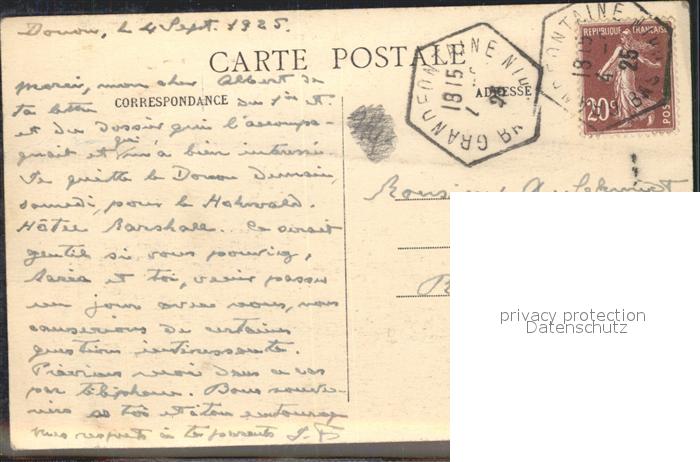 Donon, le 4 Sept. 1925.
CARTE POSTALE
CORRESPONDANCE
ADRESSE
Merci, mon cher Albert de
ta lettre du 1er et
et du dossier qui l'accompa-
gnait et qui m'a bien intéressé.
Je quitte le Donon demain,
samedi, pour le Hohwald.
Hôtel Marschall. Ce serait
gentil si vous pouviez,
et toi, venir passer
un jour avec nous, nous
causerions de certaines
questions intéressantes.
Préviens moi dans ce cas
par téléphone. Bons souve-
nirs à toi et à ton entourage
mes respects à tes parents
GRANDFONTAINE
18 15
25
GRANDFONTAINE
18 15
4
25
BAS
REPUBLIQUE FRANÇAISE
20c
POSTES
Monsieur A.
privacy protection
Datenschutz